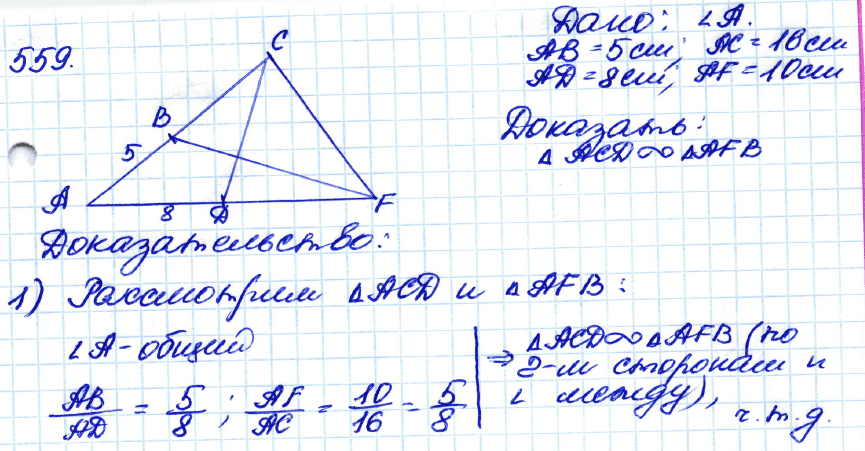 559.
Дано: ∠A.
AB = 5см; AC = 16см
AD = 8см; AF = 10см
Доказать:
△ ACD ∞ △AFB
C
B
5
A
8
D
F
Доказательство:
1) Рассмотрим △ACD и △AFB:
∠A - общий
AB/AD = 5/8; AF/AC = 10/16 = 5/8
⇒ △ACD ∞ △AFB (по
2-м сторонам и
∠ между),
ч.т.д.